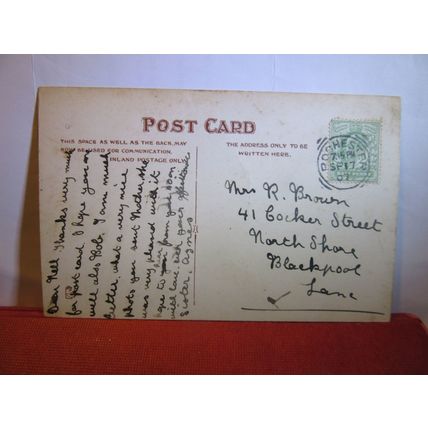 POST CARD
THIS SPACE AS WELL AS THE BACK, MAY
NOW BE USED FOR COMMUNICATION.
INLAND POSTAGE ONLY.
THE ADDRESS ONLY TO BE
WRITTEN HERE.
DORCHESTER
SP 17
07
Mrs R. Brown
41 Cocker Street
North Shore
Blackpool
Lanc
Dear Nell Thanks very much
for post card I hope you are
well also Bob. I am much
better, what a very nice
photo you sent Mother she
was very pleased with it
hope to hear from you soon
with love. from your affectionate
Sister. Agnes